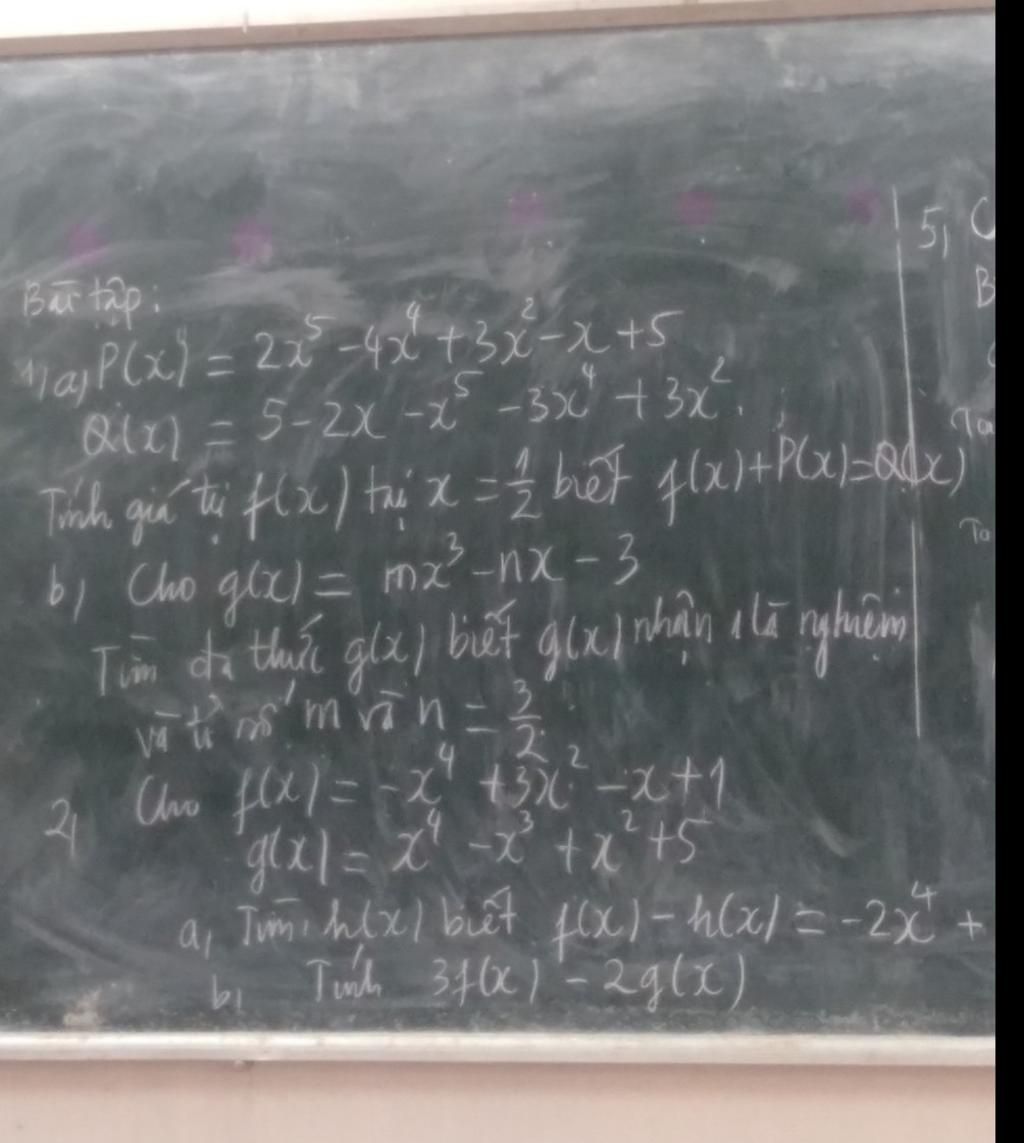 Bài tập:
1, a, P(x) = 2x⁵ - 4x⁴ + 3x² - x + 5
Q(x) = 5 - 2x - x⁵ - 3x⁴ + 3x².
Tính giá trị f(x) tại x = 1/2 biết f(x) + P(x) = Q(x)
b, Cho g(x) = mx³ - nx - 3
Tìm đa thức g(x) biết g(x) nhận 1 là nghiệm
và tỉ số m và n = 3/2
2, Cho f(x) = -x⁴ + 3x² - x + 1
g(x) = x⁴ - x³ + x² + 5
a, Tìm h(x) biết f(x) - h(x) = -2x⁴ +
b, Tính 3f(x) - 2g(x)
5, C
B
Ta